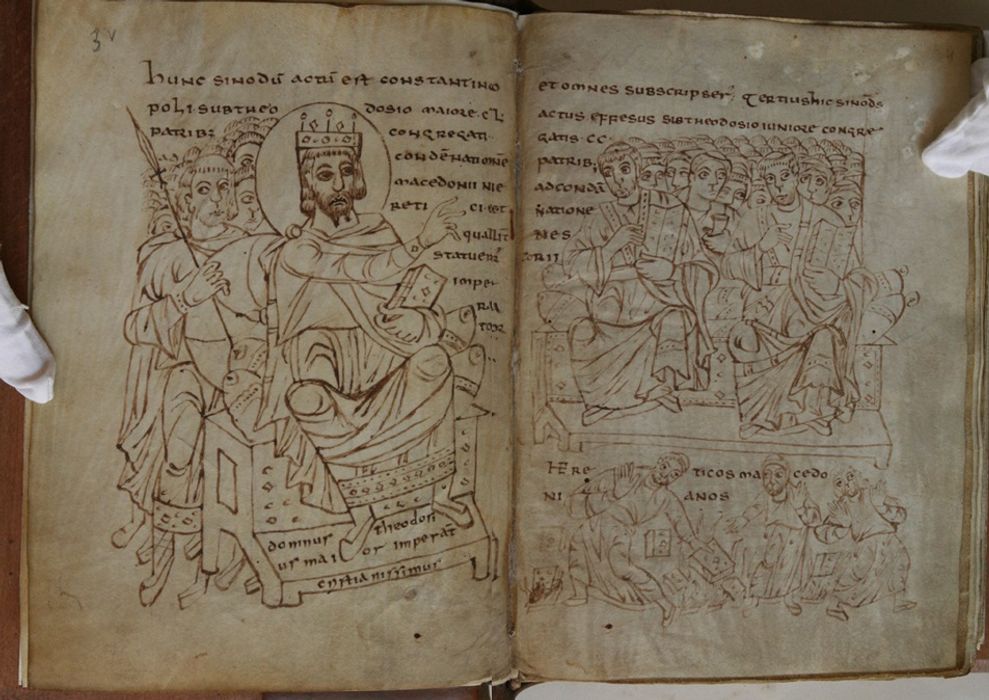 3v
hunc sinodū actū est constantino
poli sub theo dosio maiore cl
patrib; congregati
ad condēnationē
macedonii hie
reti ci est
qualit
statuer
imper
rat
tor
domnus theodosi
us mai or imperat
cristianissimus
et omnes subscripser; tertius hic sinods
actus effesus sub theodosio iuniore congre
gatis cc
patrib;
ad condē
natione
nes
torii
Here ticos macedo
ni anos